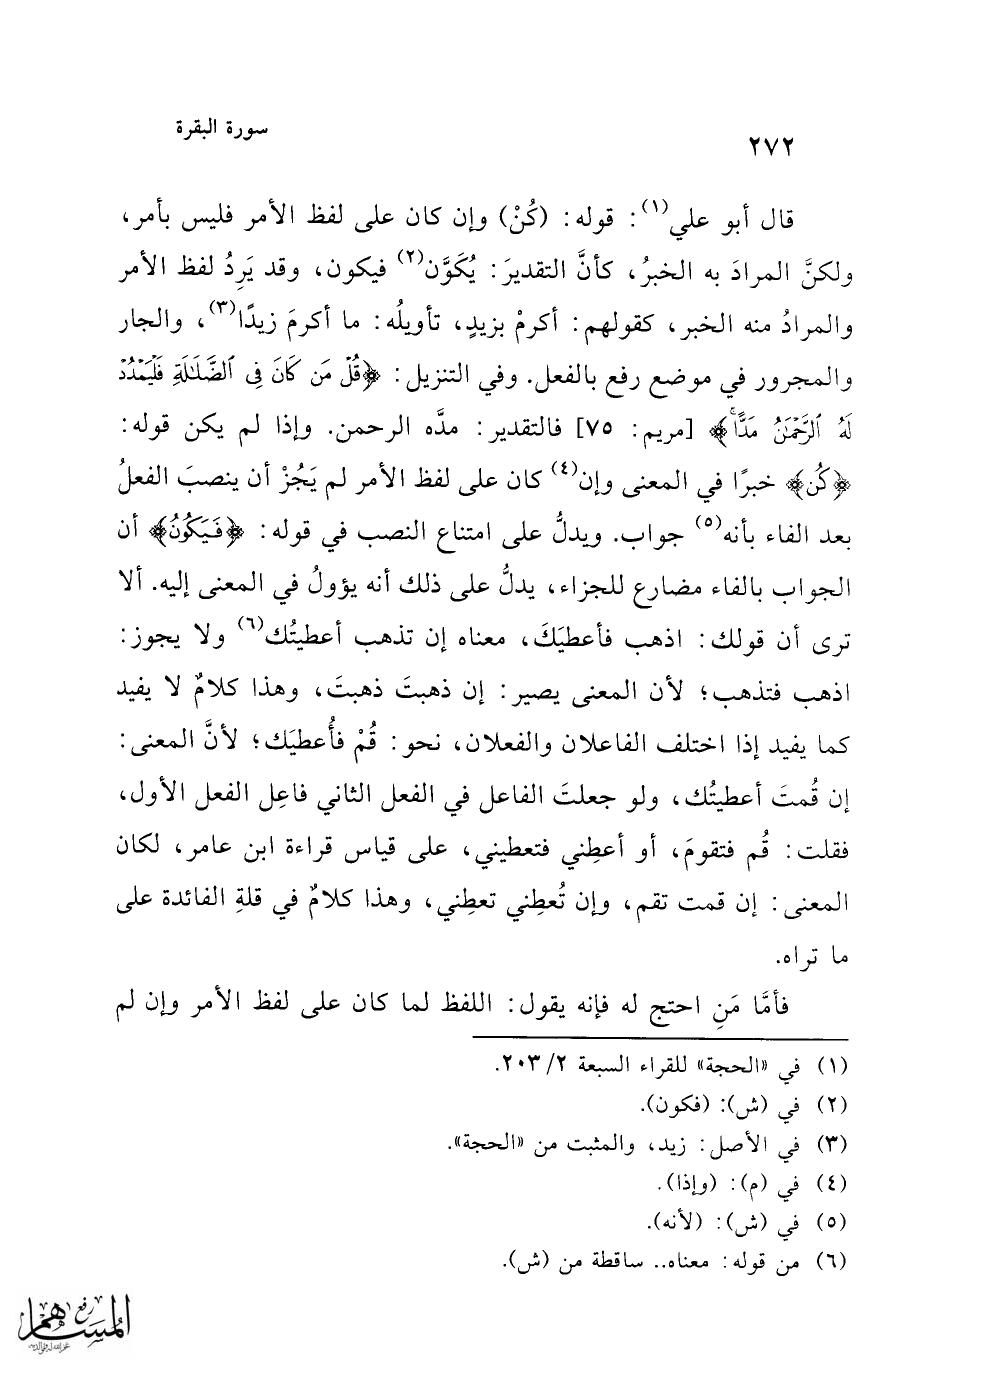 سورة البقرة
٢٧٢
قال أبو علي(١): قوله: (كُنْ) وإن كان على لفظ الأمر فليس بأمر،
ولكنَّ المرادَ به الخبرُ، كأنَّ التقديرَ: يُكَوَّن(٢) فيكون، وقد يَرِدُ لفظ الأمر
والمرادُ منه الخبر، كقولهم: أكرمْ بزيدٍ، تأويلُه: ما أكرمَ زيدًا(٣)، والجار
والمجرور في موضع رفع بالفعل. وفي التنزيل: ﴿قُلْ مَن كَانَ فِى ٱلضَّلَـٰلَةِ فَلْيَمْدُدْ
لَهُ ٱلرَّحْمَـٰنُ مَدًّا ۚ﴾ [مريم: ٧٥] فالتقدير: مدَّه الرحمن. وإذا لم يكن قوله:
﴿كُن﴾ خبرًا في المعنى وإن(٤) كان على لفظ الأمر لم يَجُزْ أن ينصبَ الفعلُ
بعد الفاء بأنه(٥) جواب. ويدلُّ على امتناع النصب في قوله: ﴿فَيَكُونُ﴾ أن
الجواب بالفاء مضارع للجزاء، يدلُّ على ذلك أنه يؤولُ في المعنى إليه. ألا
ترى أن قولك: اذهب فأعطيَكَ، معناه إن تذهب أعطيتُك(٦) ولا يجوز:
اذهب فتذهب؛ لأن المعنى يصير: إن ذهبتَ ذهبتَ، وهذا كلامٌ لا يفيد
كما يفيد إذا اختلف الفاعلان والفعلان، نحو: قُمْ فأُعطيَك؛ لأنَّ المعنى:
إن قُمتَ أعطيتُك، ولو جعلتَ الفاعل في الفعل الثاني فاعِل الفعل الأول،
فقلت: قُم فتقومَ، أو أعطِني فتعطيني، على قياس قراءة ابن عامر، لكان
المعنى: إن قمت تقم، وإن تُعطِني تعطِني، وهذا كلامٌ في قلةِ الفائدة على
ما تراه.
فأمَّا مَنِ احتج له فإنه يقول: اللفظ لما كان على لفظ الأمر وإن لم
(١) في «الحجة» للقراء السبعة ٢/ ٢٠٣.
(٢) في (ش): (فكون).
(٣) في الأصل: زيد، والمثبت من «الحجة».
(٤) في (م): (وإذا).
(٥) في (ش): (لأنه).
(٦) من قوله: معناه.. ساقطة من (ش).
رفع
المساهم